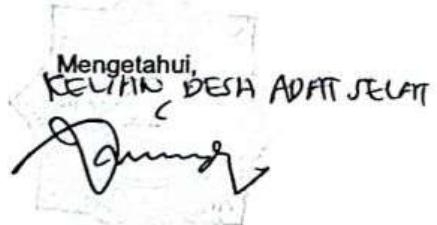 Mengetahui,
KELIHN DESA ADAT SELAT